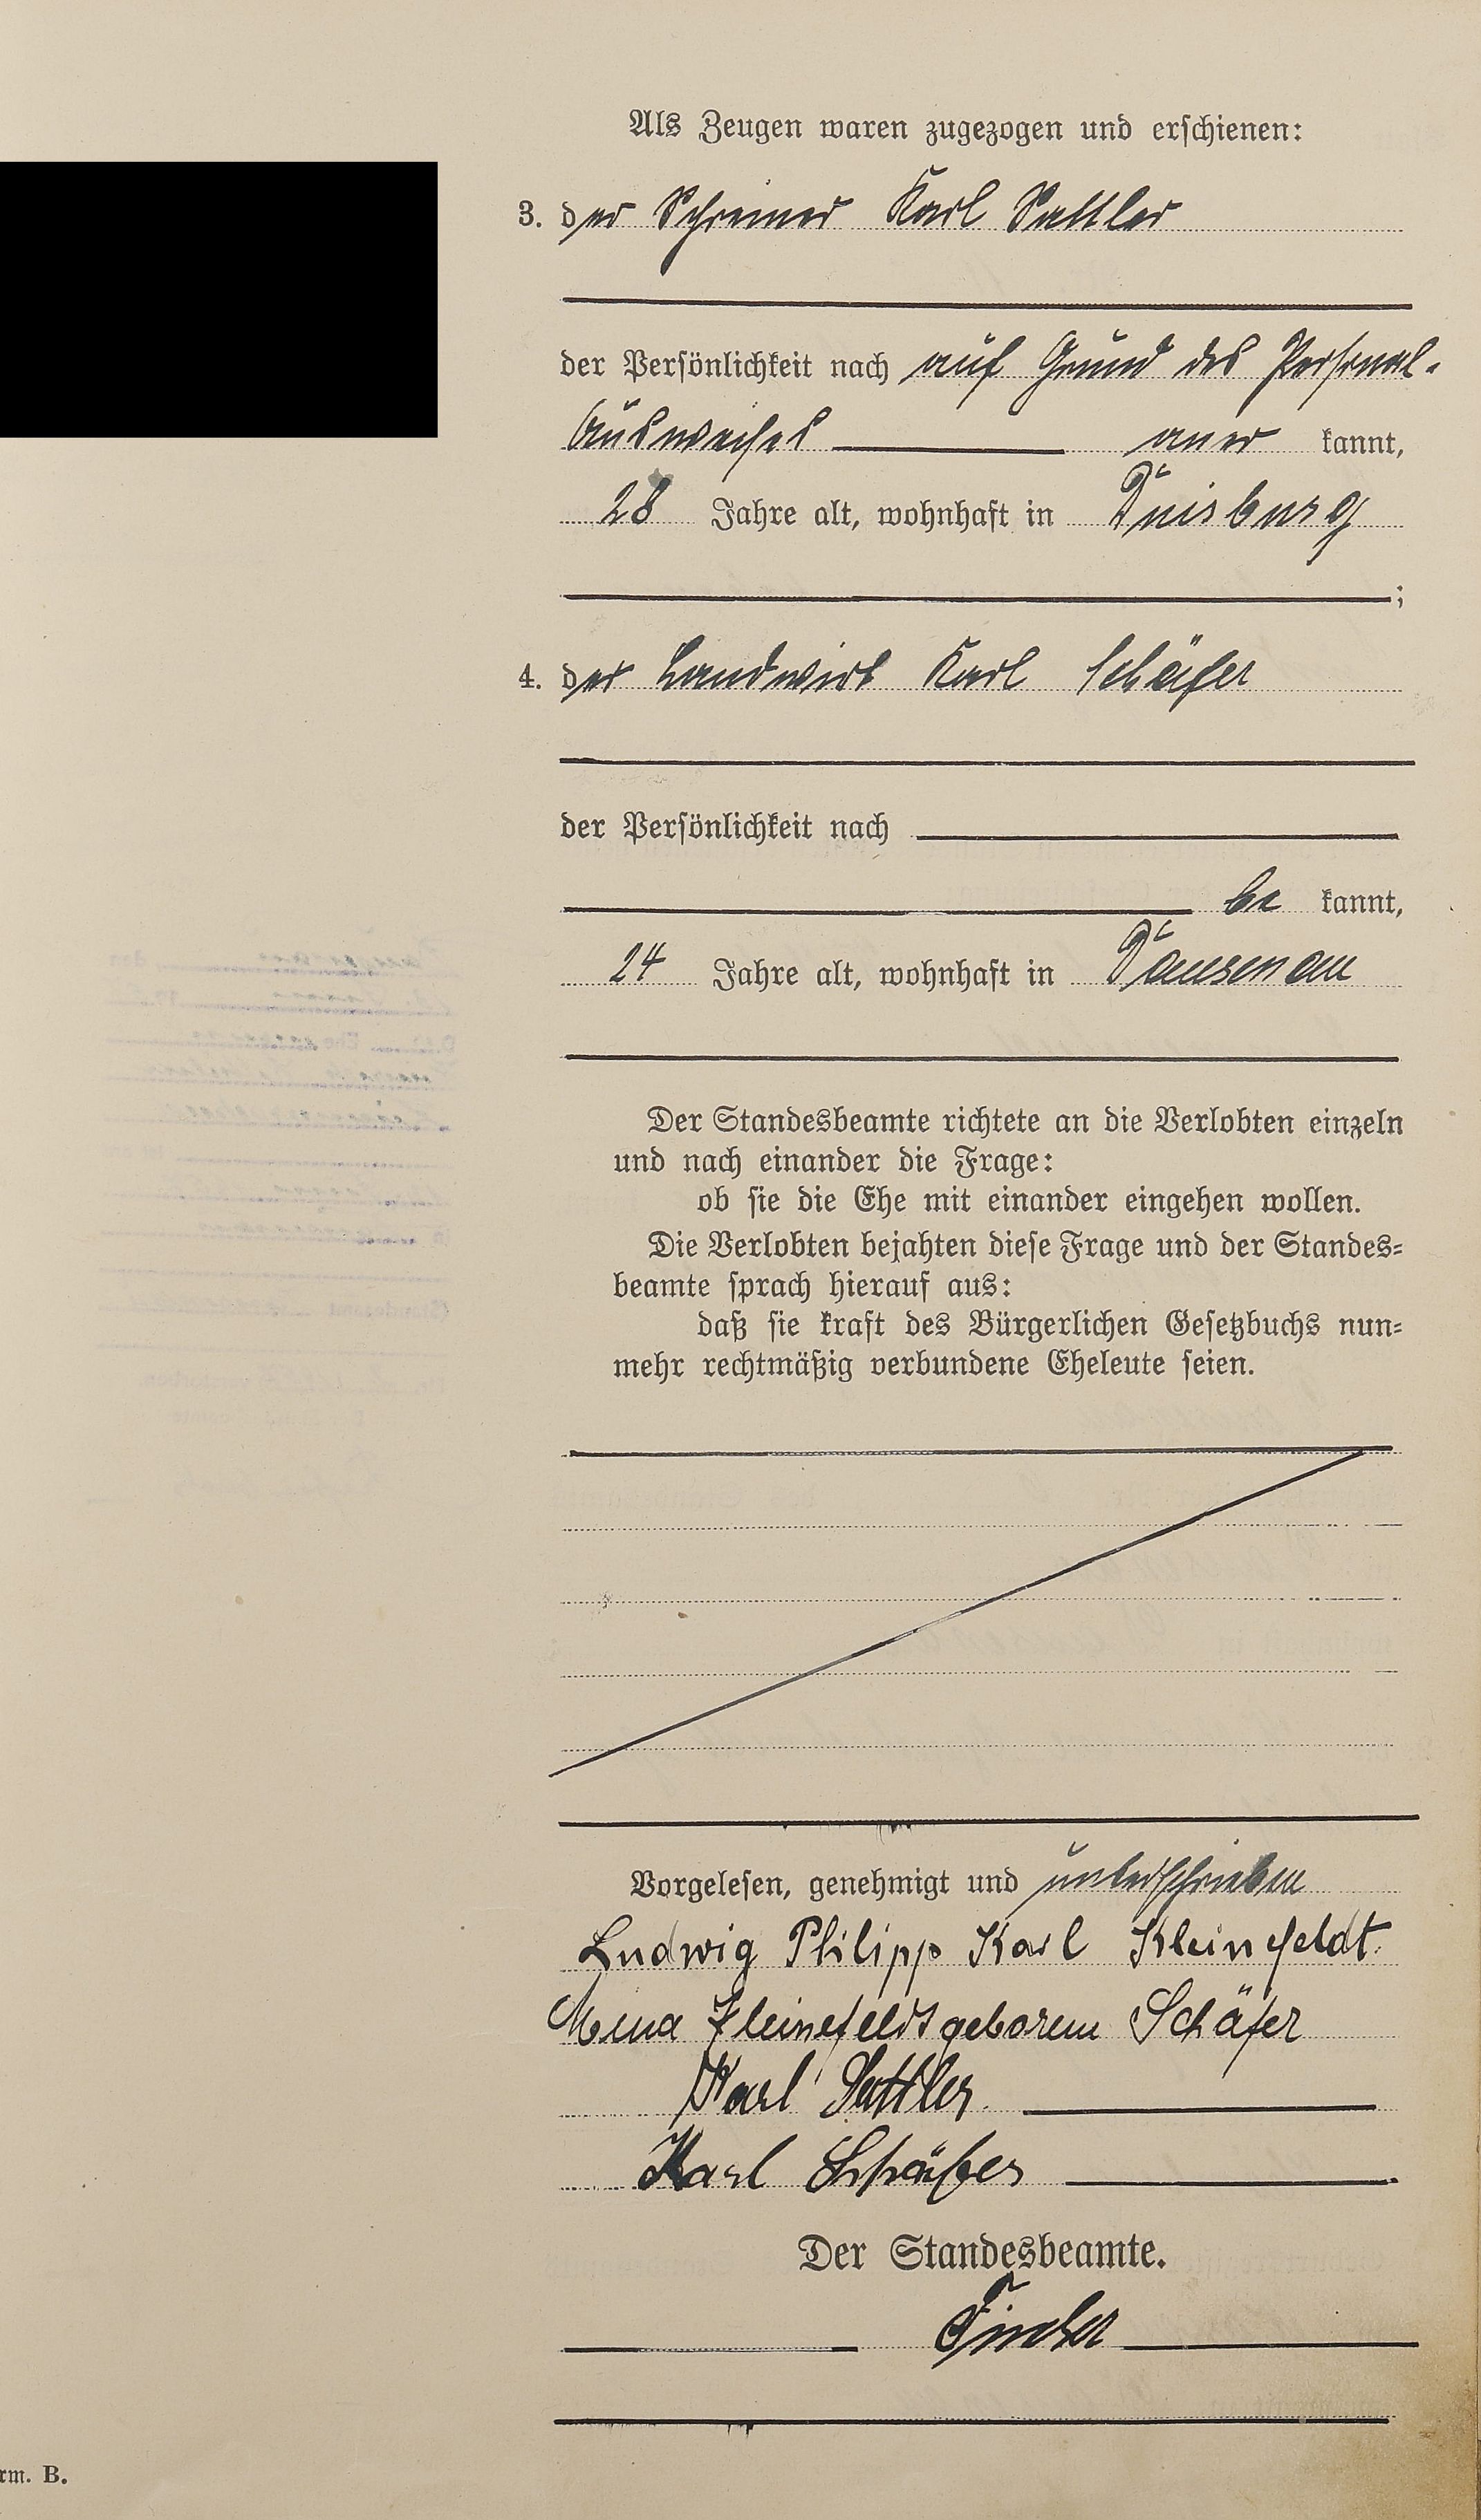 Als Zeugen waren zugezogen und erschienen:
3. der Schreiner Karl Sattler
der Persönlichkeit nach auf Grund des Personal-
Ausweises aner kannt,
28 Jahre alt, wohnhaft in Duisburg
;
4. der Landwirt Karl Schäfer
der Persönlichkeit nach
be kannt,
24 Jahre alt, wohnhaft in Dausenau
Der Standesbeamte richtete an die Verlobten einzeln
und nach einander die Frage:
ob sie die Ehe mit einander eingehen wollen.
Die Verlobten bejahten diese Frage und der Standes-
beamte sprach hierauf aus:
daß sie kraft des Bürgerlichen Gesetzbuchs nun-
mehr rechtmäßig verbundene Eheleute seien.
Vorgelesen, genehmigt und unterschrieben
Ludwig Philipp Karl Kleinefeldt.
Mina Kleinefeldt geborene Schäfer
Karl Sattler.
Karl Schäfer
Der Standesbeamte.
rm. B.